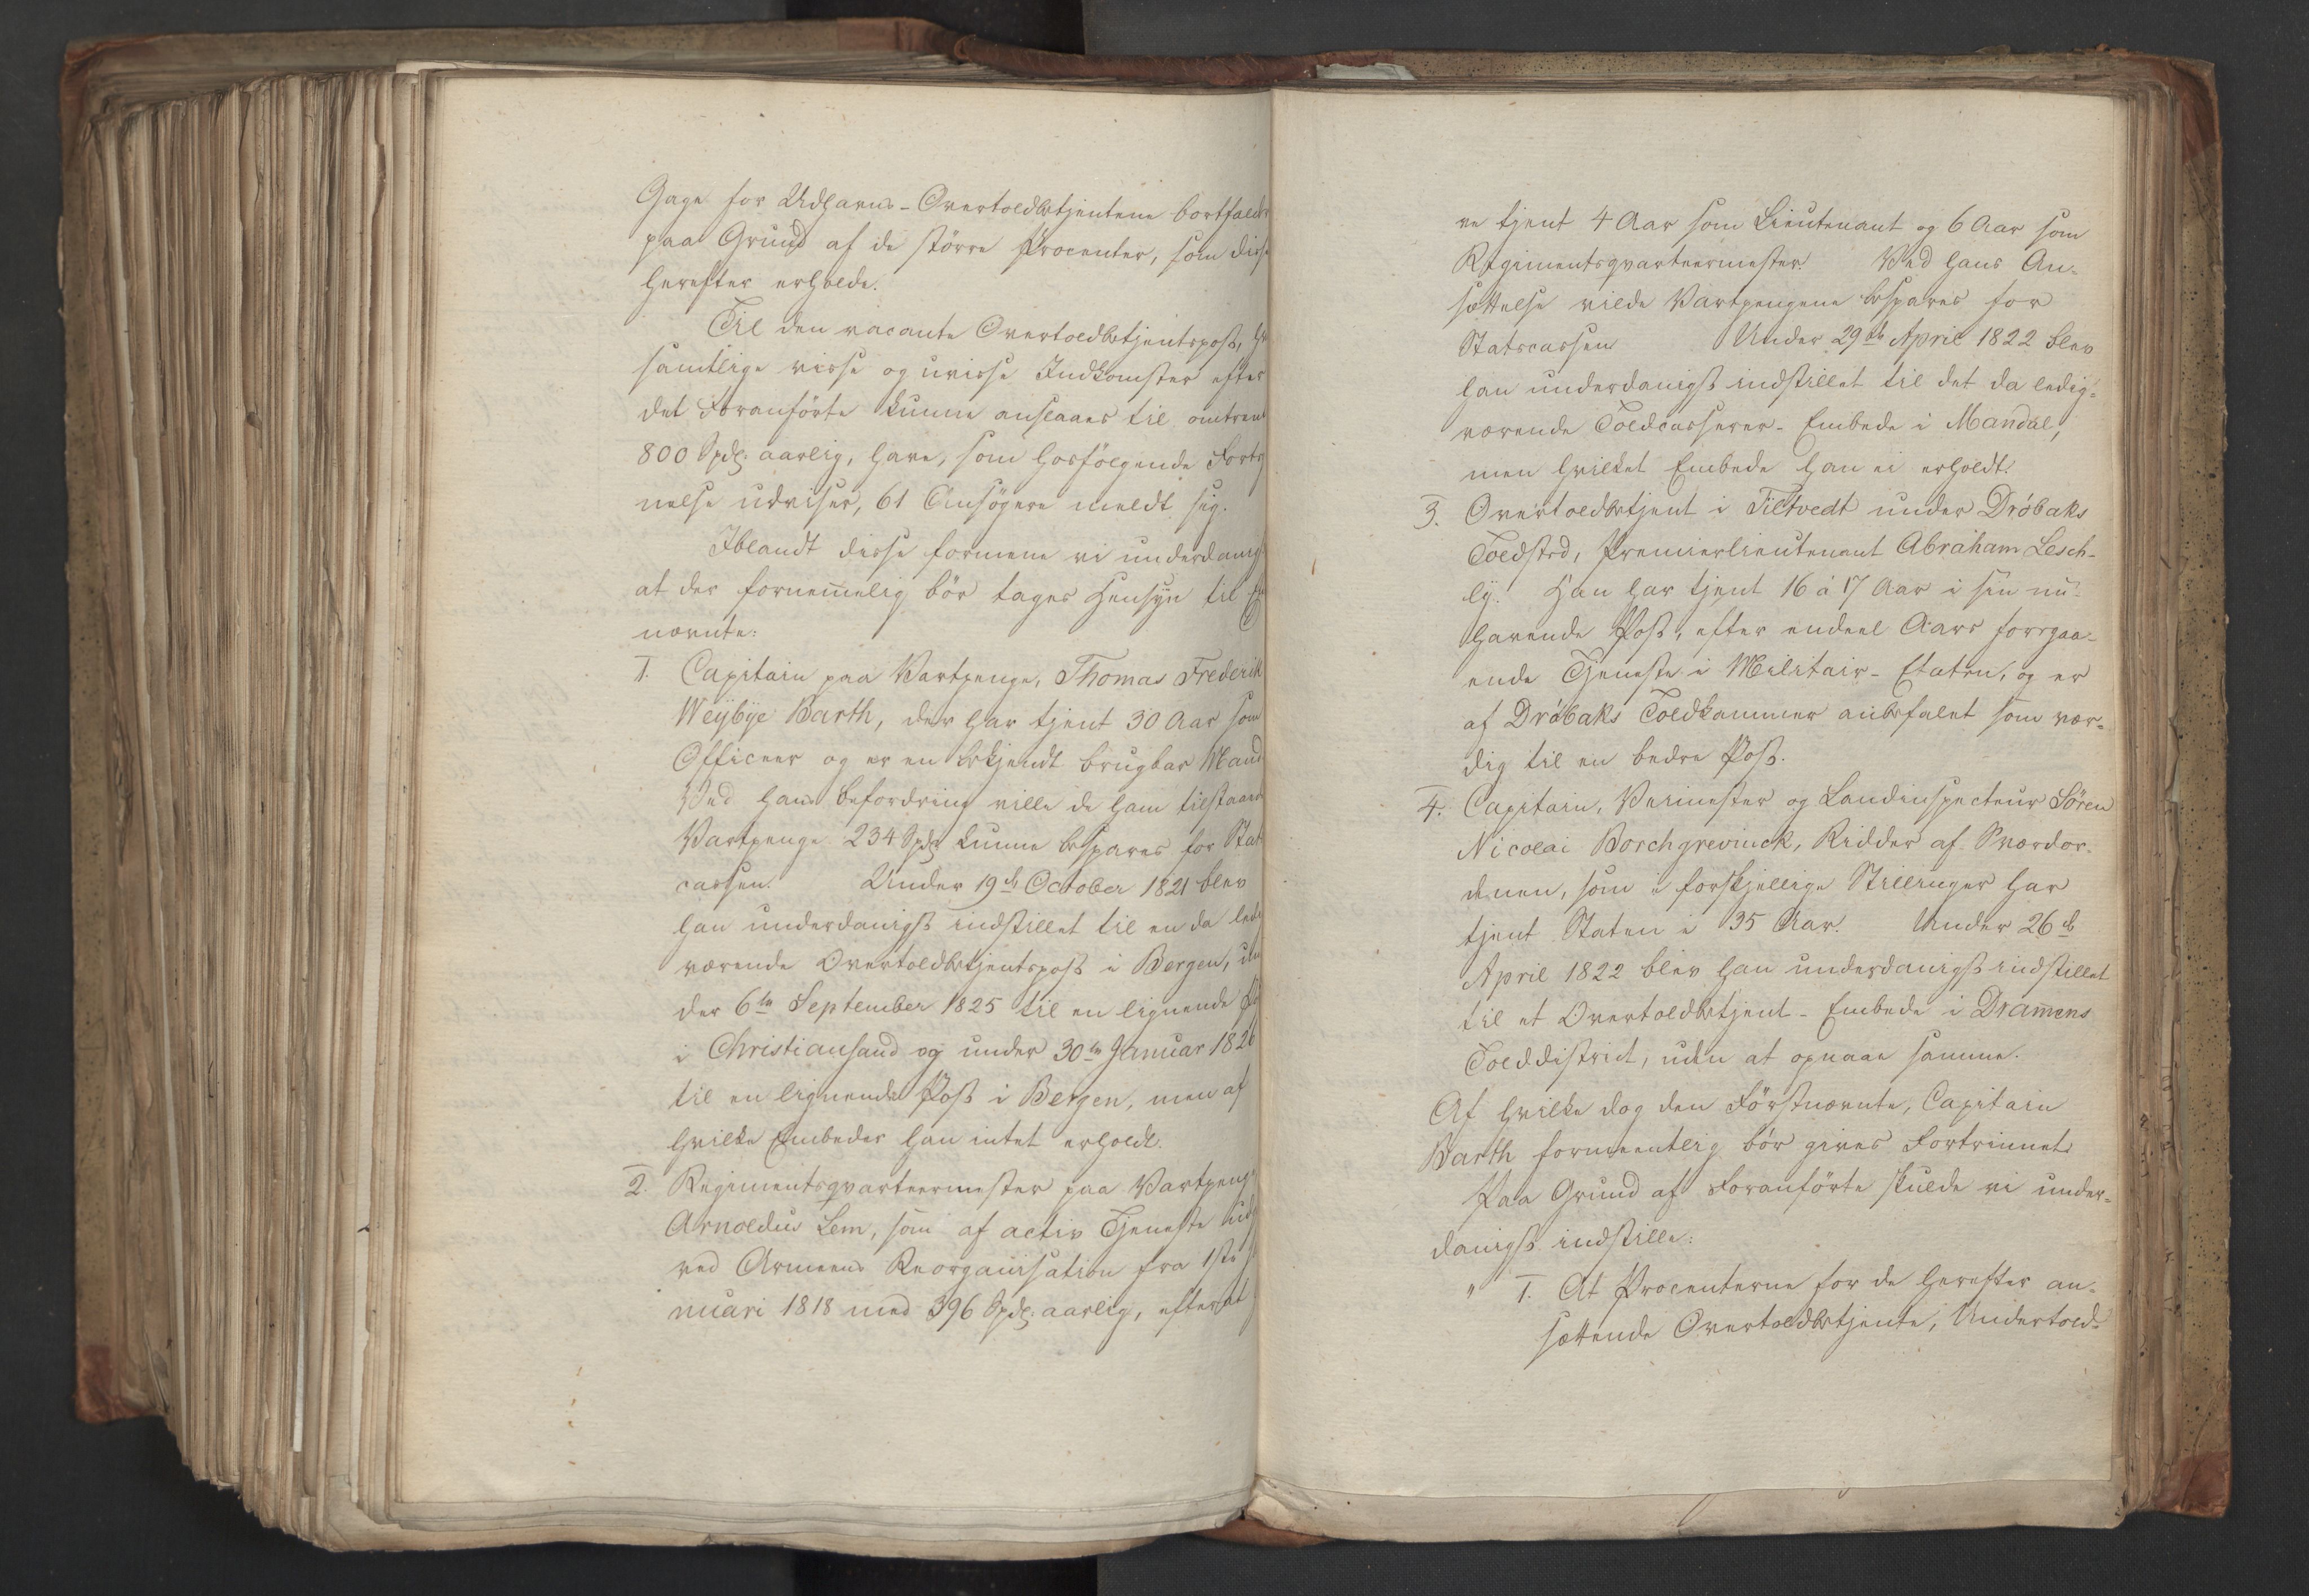 Gage for Udhavns-Overtoldbetjentene bortfalder
paa Grund af de större Procenter, som disse
herefter erholde.
Til den vacante Overtoldbetjentspost,
samtlige visse og uvisse Indkomster efter
det Foranförte kunne anslaaes til omtrent
800 Spd. aarlig, have, som hosfölgende Forteg
nelse udviser, 61 Ansögere meldt sig.
Iblandt disse formene vi underdanigst
at der fornem̄elig bör tages Hensyn til
nævnte:
1. Capitain paa Vartpenge, Thomas Frederik
Weybye Barth, der har tjent 30 Aar som
Officeer og er en bekjendt brugbar Mand
Ved hans Befordring ville de ham tilstaaede
Vartpenge 234 Spd. kunne besparees for Stats
cassen. Under 19de October 1821 blev
han underdanigst indstillet til en da ledig
værende Overtoldbetjentspost i Bergen, un
der 6te September 1825 til en lignende
i Christiansand og under 30te Januar 1826
til en lignende Post i Bergen, men af
hvilke Embeder han intet erholdt.
2. Regimentsqvarteermester paa Vartpenge
Arnoldus Lem, som af activ Tjeneste udg
ved Armeens Reorganisation fra 1ste
nuari 1818 med 396 Spd. aarlig, efter at
ve tjent 4 Aar som Lieutenant og 6 Aar som
Regimentsqvarteermester. Ved hans An-
sættelse vilde Vartpengene bespares for
Statscassen Under 29de April 1822 blev
han underdanigst indstillet til det da ledig-
værende Toldcasserer-Embede i Mandal,
men hvilket Embede han ei erholdt.
3. Overtoldbetjent i Tiltvedt under Dröbaks
Toldsted, Premierlieutenant Abraham Lesch-
ly. Han har tjent 16 à 17 Aar i sin nu-
havende Post, efter endeel Aars forrgaa-
ende Tjeneste i Militair-Etaten, og er
af Dröbaks Toldkammer anbefalet som vær-
dig til en bedre Post.
4. Capitain, Veimester og Landinspecteur Sören
Nicolai Borchgrevinck, Ridder af Sværdor-
denen, som i forskjellige Stillinger har
tjent Staten i 35 Aar. Under 26de
April 1822 blev han underdanigst indstillet
til et Overtoldbetjent-Embede i Dram̄ens
Tolddistrict, uden at opnaae samme.
Af hvilke dog den Förstnævnte, Capitain
Barth formeentlig bör gives Fortrinnet.
Paa Grund af Foranförte skulde vi under-
danigst indstille:
" 1. At Procenterne for de herefter an-
sættende Overtoldbetjente, Undertold-